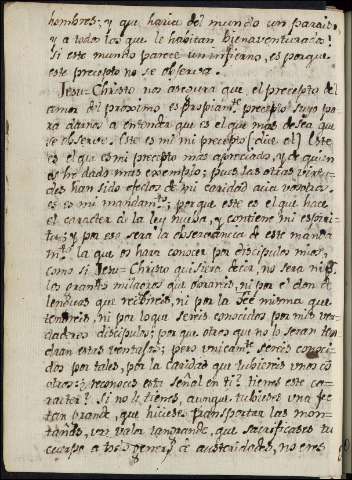 hombres; y que haria del mundo un paraiso,
y a todos los que le habitan bienaventurados!
Si este mundo parece un infierno, es porque
este precepto no se observa.
Jesu-Christo nos asegura que el precepto del
amor del proximo es propiamte. precepto suyo pa
ra darnos a entender que es el que mas desea que
se observe. Este es mi mi precepto [dice el] Este
es el que es mi precepto mas apreciado, y de quien
os he dado mas exemplo; pues las otras virtu
des han sido efectos de mi caridad acia vosotros.
es es mi mandamto. porque este es el que hace
el caracter de la ley nueva, y contiene mi espiri
tu; y por eso sera la observancia de este manda
mto. la que os hara conocer por discipulos mios,
como si Jesu-Christo quisiera decir, no sera ni p.
los grandes milagros que obrareis, ni por el don de
lenguas que recibireis, ni por la Fee misma que
tendreis, ni por lo que sereis conocidos por mis ver
daderos discipulos; por que otros que no lo seran ten
dran estas ventajas; pero unicamte. sereis conoci
dos por tales, por la caridad que tubiereis unos co
otros; reconoces esta señal en ti? tienes este ca
racter? Si no le tienes, aunque tubieses una fe
tan grande, que hiciese transportar las mon
tañas, un valor tan grande, que sacrificases tu
cuerpo a todo genero de austeridades, no eres